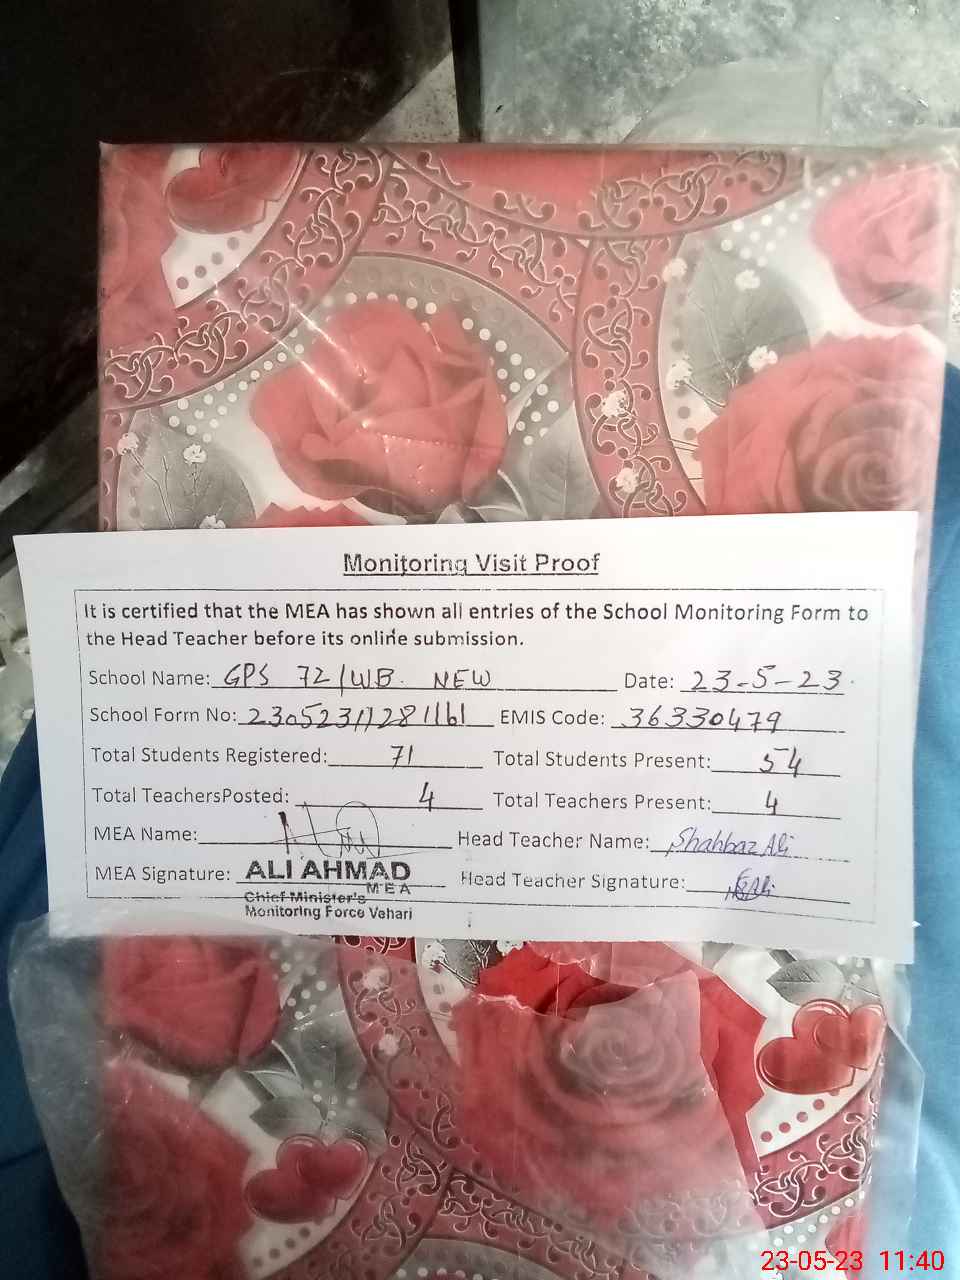 Monitoring Visit Proof
It is certified that the MEA has shown all entries of the School Monitoring Form to
the Head Teacher before its online submission.
School Name: GPS 72/WB. NEW Date: 23-5-23
School Form No: EMIS Code: 36330479
Total Students Registered: 71 Total Students Present: 54
Total TeachersPosted: 4 Total Teachers Present: 4
MEA Name: Head Teacher Name: Shahbaz Ali
MEA Signature: ALI AHMAD Head Teacher Signature:
MEA
Chief Minister's
Monitoring Force Vehari
23-05-23 11:40